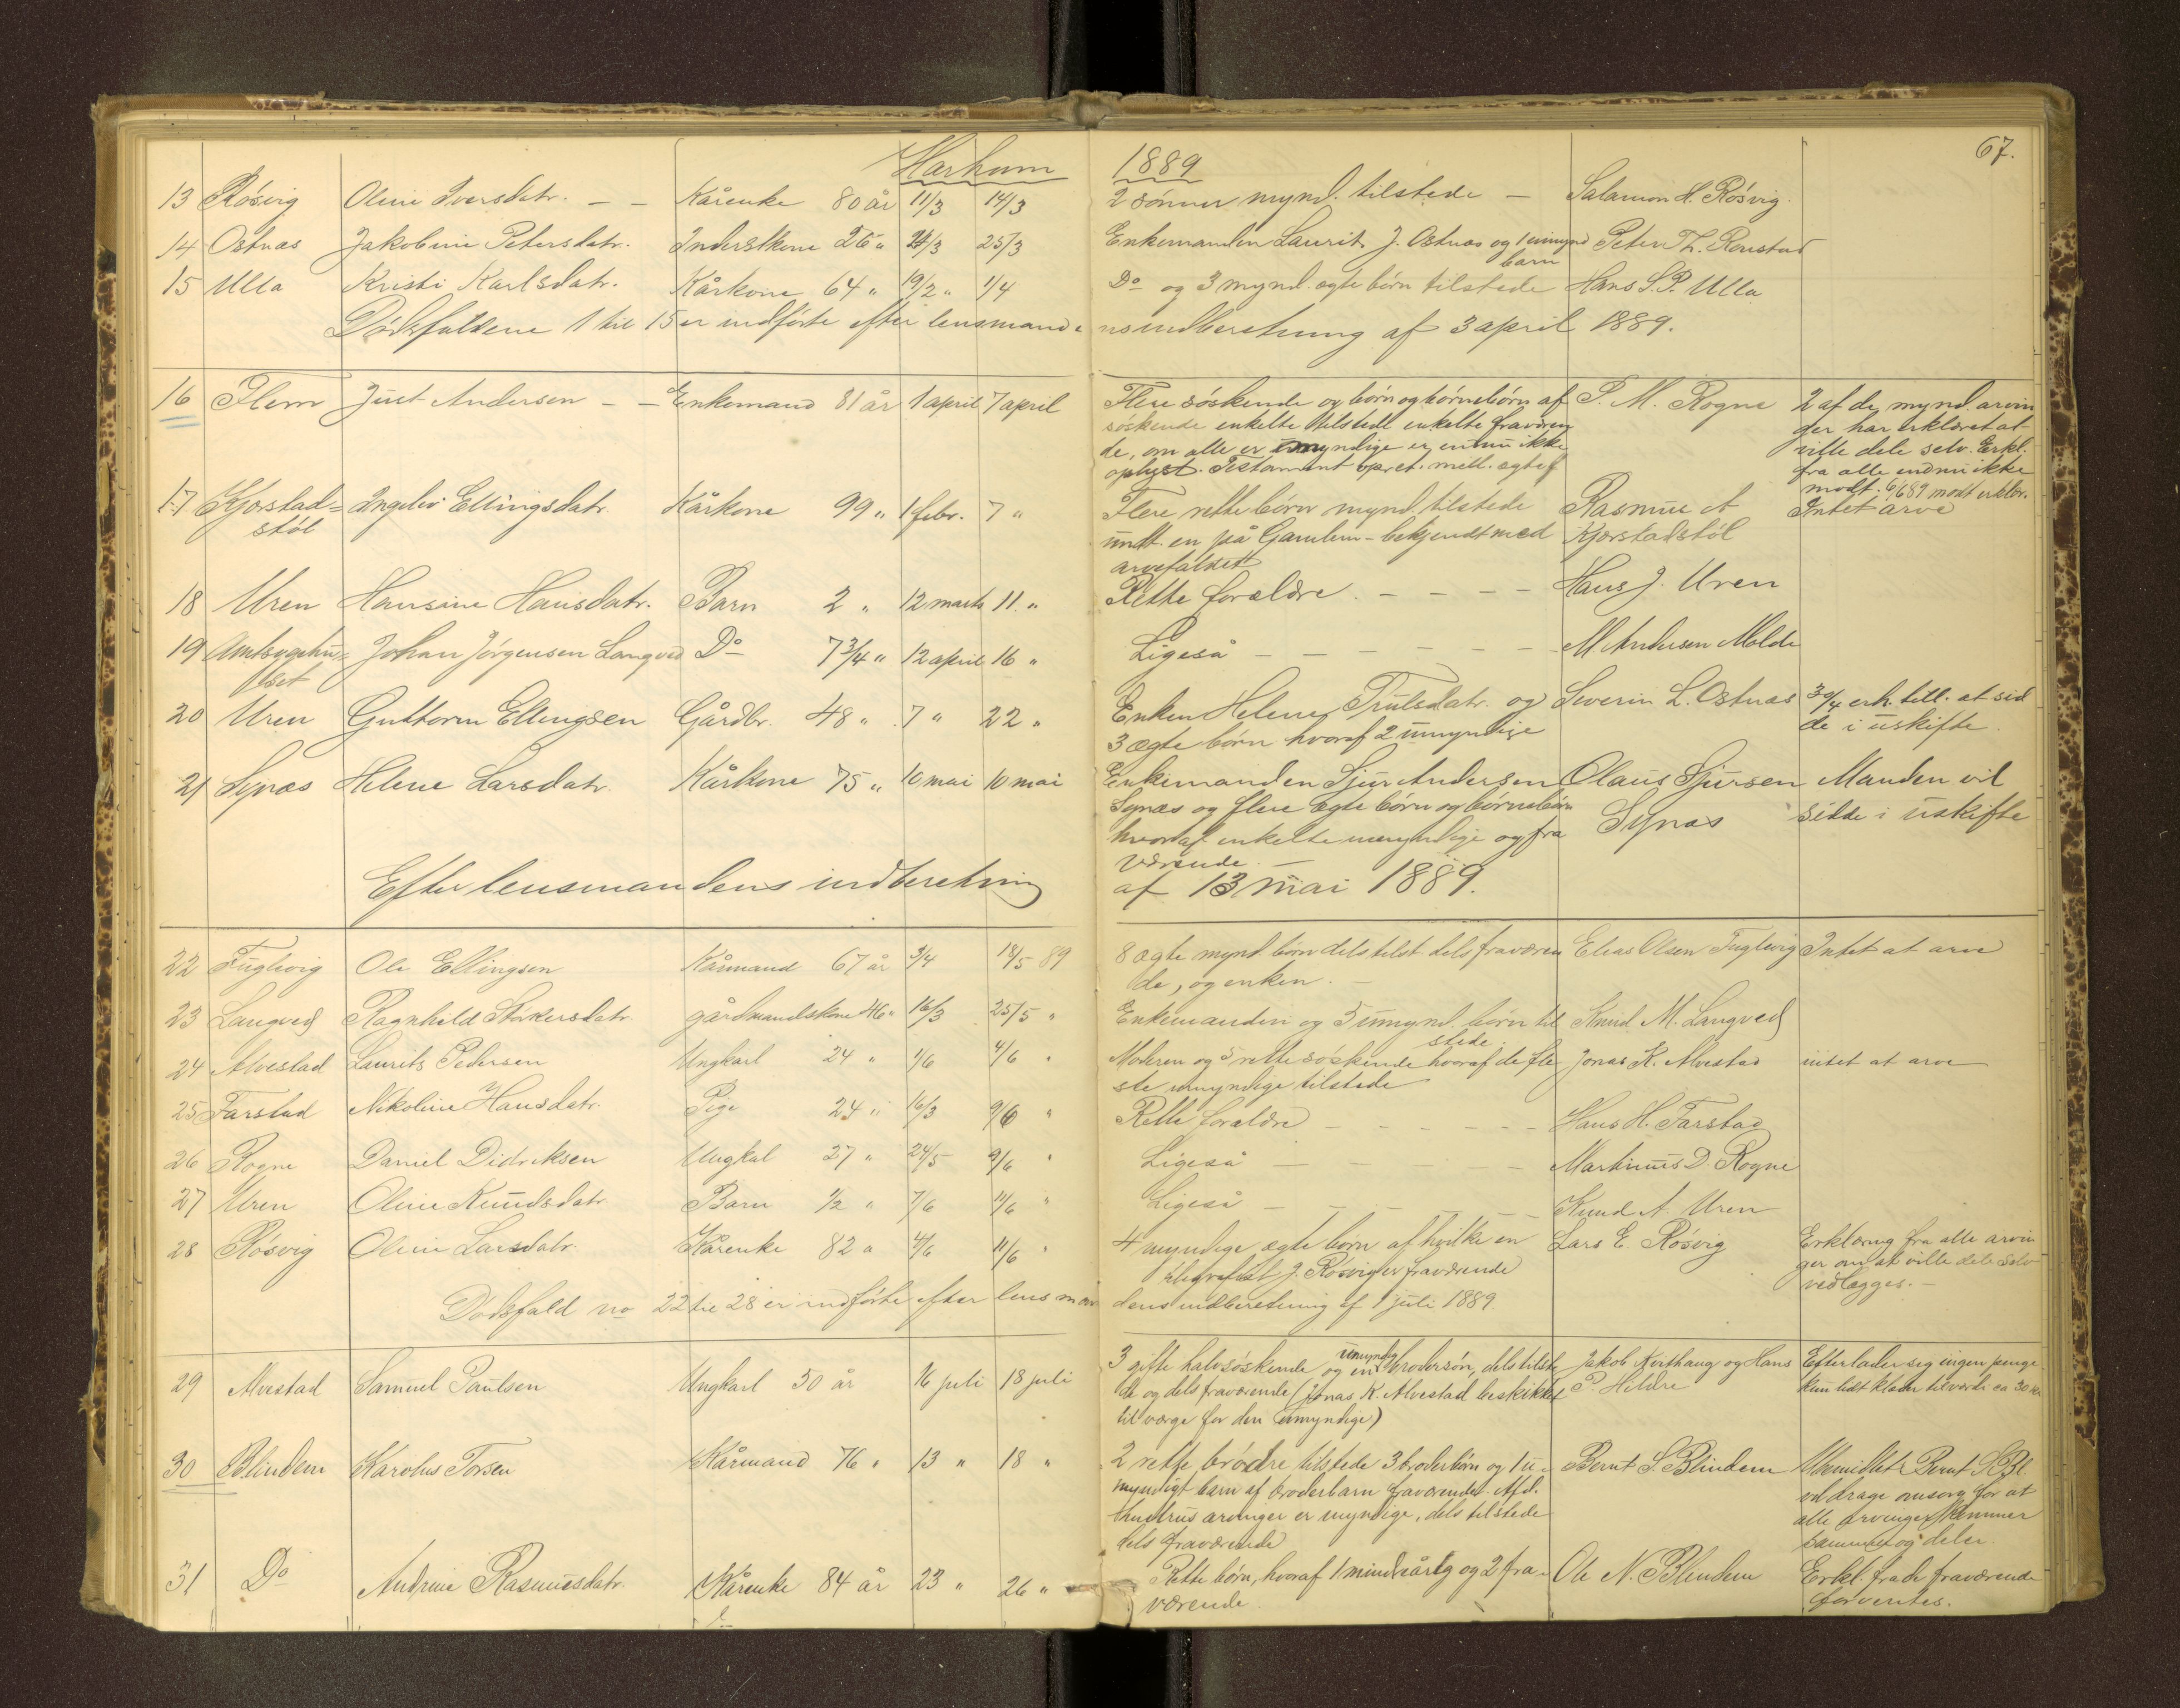 Harham 1889 67.
13 Rósvig Oline Iversdatr. - - Kårenke 80 år 11/3 14/3 2 sónner mynd. tilstede - Salamon H. Rósvig.
14 Ostnæs Jakobine Petersdatr. Inderstkone 26 " 25/3 Enkemanden Laurits J. Ostnæs og 1 umynd Peter Th. Ronstad
barn
15 Ulla Kristi Karlsdatr. Kårkone 64 " 19/2 " 1/4 Do og 3 mynd. ægte børn tilstede Hans S. P. Ulla
Dódsfaldene 1 til 15 er indfórte efter lensmandensindberetning af 3 april 1889.
16 Flem Just Andersen - - Enkemand 81 år 1 april 7 april Flere sóskende og børn og børnebørn af P. M. Rogne 2 af de mynd. arvin
sóskende enkelte tilstede enkelte fraværen ger har erklæret at
de, om alle er myndige er endnu ikke ville dele selv. Erkl.
oplyst. Testament opret. mell. ægtef fra alle endnu ikke
modt. 6/6 89 modt erklær.
17 Kjørstad= Ingeliv Ellingsdatr Kårkone 99 " 1 febr. 7 " Flere rette børn mynd. tilstede Rasmus A Intet arve
stól undt. en på Gamlem - bekjendt med Kjørstadstól
arvefaldet
18 Uren Hansine Hansdatr. Barn 2 " 12 marts 11 " Rette forældre. - - - - Hans J. Uren
19 Amtssygehu= Johan Jórgensen Langved Do 7 3/4 " 12 april 16 " Ligeså - - - - - - M Andersen Molde
set
20 Uren Guttorm Ellingsen Gårdbr. 48 " 7 " 22 " Enken Helene Trulsdatr. og Severin L. Ostnæs 30/4 erh. till. at sid
3 ægte børn hvoraf 2 umyndige de i uskifte.
21 Synæs Helene Larsdatr. Kårkone 75 " 10 mai 10 mai Enkemanden Sjur Andersen Olaus Sjursen Manden vil
Synæs og flere ægte børn og børnebørn Synæs sidde i uskifte
hvoraf enkelte umyndige og fra
værende. -
Efter lensmandens indberetning af 13 mai 1889.
22 Fuglevig Ole Ellingsen Kårmand 67 år 3/4 18/5 89 8 ægte mynd. børn dels tilst dels fraværen Elias Olsen Fuglevig Intet at arve
de, og enken. -
23 Langved Ragnhild Størkersdatr. gårdmandskone 46 " 16/3 25/5 " Enkemanden og 5 umynd. børn til Knud M. Langved
stede.
24 Alvestad Laurits Pedersen Ungkarl 24 " 1/6 4/6 " Moderen og 5 rette sóskende hvoraf de fle Jonas K. Alvestad intet at arve
ste umyndige tilstede
25 Farstad Nikoline Hansdatr. Pige 24 " 16/3 9/6 " Rette forældre - - - - - - Hans H. Farstad
26 Rogne Daniel Didriksen Ungkal 27 " 24/5 9/6 " Ligeså - - - - - Martinus D. Rogne
27 Uren Oline Knudsdatr. Barn 1/2 " 7/6 11/6 " Ligeså - - - - - - Knud A. Uren
28 Rósvig Oline Larsdatr. Kårenke 82 " 4/6 11/6 " 4 myndige ægte børn af hvilke en Lars E. Rósvig Erklæring fra alle arvin
telegrafist J. Rósvig er fraværende ger om at ville dele selv
vedlægges. -
Dódsfald no 22 til 28 er indfórte efter lensmandens indberetning af 1 juli 1889
29 Alvestad Samuel Paulsen Ungkarl 50 år 16 juli 18 juli 3 gifte halvsóskende og en umyndig brodersón, dels tilste Jakob Korthaug og Hans Efterlader sig ingen penge
de og dels fraværende (Jonas K. Alvestad beskikket P. Hildre kun lidt klæder til værdi ca 30 kr
til værge for den umyndige)
30 Blindem Karolus Torsen Kårmand 76 " 13 " 18 " 2 rette brødre tilstede 3 broderbørn og 1 u= Bernt S. Blindem Bernt S. Bl.
myndigt barn af broderbarn fraværende. Afd. vil drage omsorg for at
hustrus arvinger er myndige, dels tilstede alle arvinger kommer
dels fraværende sammen og deler.
31 Do Andrine Rasmusdatr. Kårenke 84 år 23 " 26 " Rette børn, hvoraf 1 mindreårig og 2 fra= Ole N. Blindem Erkl. fra de fraværende
værende. forventes.